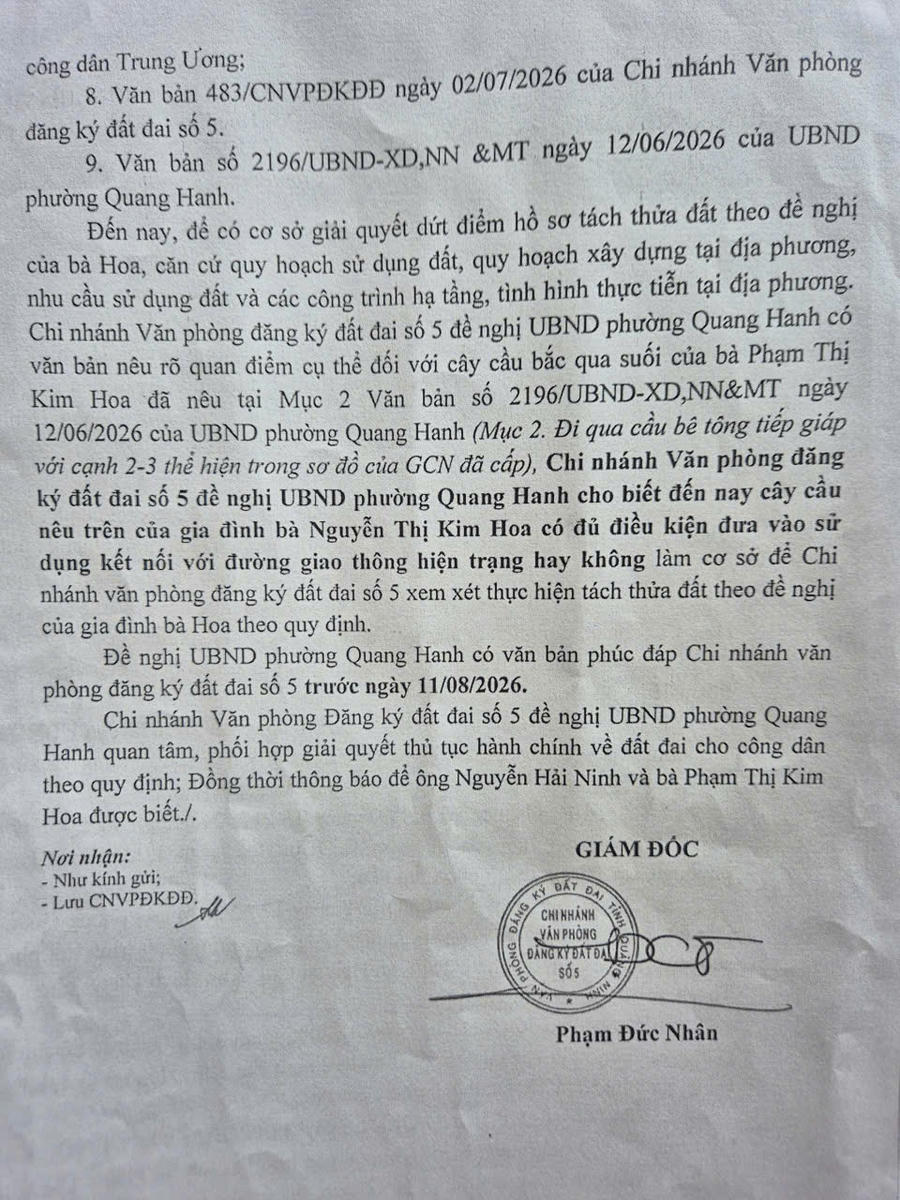 công dân Trung Ương;
8. Văn bản 483/CNVPĐKĐĐ ngày 02/07/2026 của Chi nhánh Văn phòng
đăng ký đất đai số 5.
9. Văn bản số 2196/UBND-XD,NN &MT ngày 12/06/2026 của UBND
phường Quang Hanh.
Đến nay, để có cơ sở giải quyết dứt điểm hồ sơ tách thửa đất theo đề nghị
của bà Hoa, căn cứ quy hoạch sử dụng đất, quy hoạch xây dựng tại địa phương,
nhu cầu sử dụng đất và các công trình hạ tầng, tình hình thực tiễn tại địa phương.
Chi nhánh Văn phòng đăng ký đất đai số 5 đề nghị UBND phường Quang Hanh có
văn bản nêu rõ quan điểm cụ thể đối với cây cầu bắc qua suối của bà Phạm Thị
Kim Hoa đã nêu tại Mục 2 Văn bản số 2196/UBND-XD,NN&MT ngày
12/06/2026 của UBND phường Quang Hanh (Mục 2. Đi qua cầu bê tông tiếp giáp
với cạnh 2-3 thể hiện trong sơ đồ của GCN đã cấp), Chi nhánh Văn phòng đăng
ký đất đai số 5 đề nghị UBND phường Quang Hanh cho biết đến nay cây cầu
nêu trên của gia đình bà Nguyễn Thị Kim Hoa có đủ điều kiện đưa vào sử
dụng kết nối với đường giao thông hiện trạng hay không làm cơ sở để Chi
nhánh văn phòng đăng ký đất đai số 5 xem xét thực hiện tách thửa đất theo đề nghị
của gia đình bà Hoa theo quy định.
Đề nghị UBND phường Quang Hanh có văn bản phúc đáp Chi nhánh văn
phòng đăng ký đất đai số 5 trước ngày 11/08/2026.
Chi nhánh Văn phòng Đăng ký đất đai số 5 đề nghị UBND phường Quang
Hanh quan tâm, phối hợp giải quyết thủ tục hành chính về đất đai cho công dân
theo quy định; Đồng thời thông báo để ông Nguyễn Hải Ninh và bà Phạm Thị Kim
Hoa được biết./.
Nơi nhận:
- Như kính gửi;
- Lưu CNVPĐKĐĐ.
GIÁM ĐỐC
VĂN PHÒNG ĐĂNG KÝ ĐẤT ĐAI TỈNH QUẢNG NINH
CHI NHÁNH
VĂN PHÒNG
ĐĂNG KÝ ĐẤT ĐAI
SỐ 5
Phạm Đức Nhân